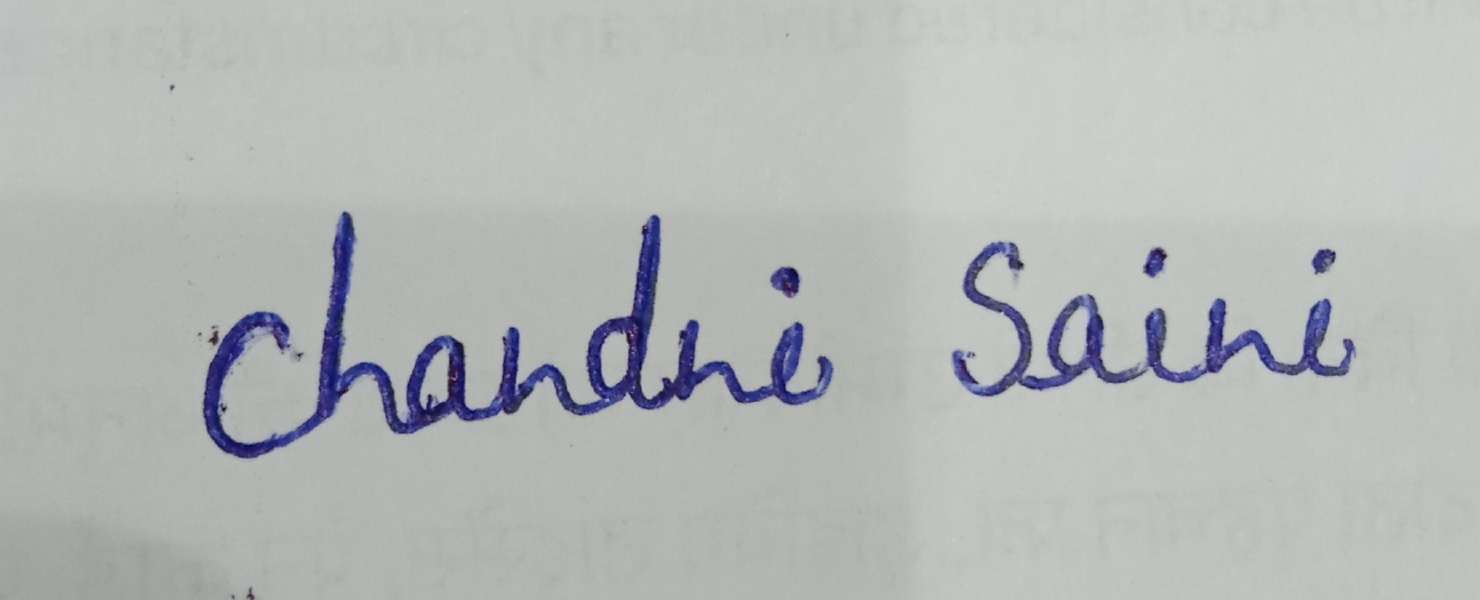 Chandni Saini